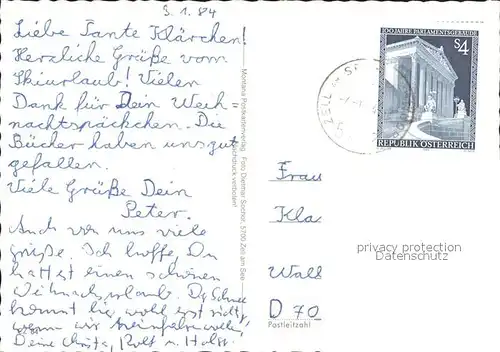 3.1.84
Liebe Tante Klärchen!
Herzliche Grüße vom
Skiurlaub! Vielen
Dank für Dein Weih=
nachtspäckchen. Die
Bücher haben uns gut
gefallen.
Viele Grüße Dein
Peter.
Auch von uns viele
Grüße. Ich hoffe, Du
hattest einen schönen
Weihnachtsurlaub. Der Schnee
kommt wohl erst richtig,
wenn wir heimfahren wollen,
Deine Christa, Rolf u. Holger
Montana Postkartenverlag Foto Dietmar Sochor, 5700 Zell am See
Nachdruck verboten!
100 JAHRE PARLAMENTSGEBÄUDE
S4
REPUBLIK ÖSTERREICH
ZELL
Frau
Kla
privacy protection
Datenschutz
Wall
D 70
Postleitzahl